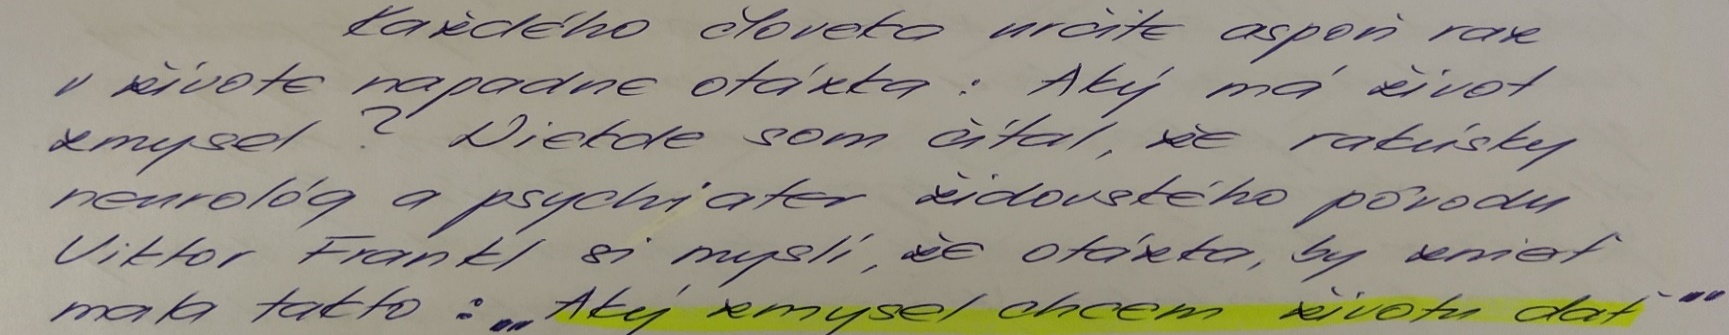 Každého človeka určite aspoň raz
v živote napadne otázka: Aký má život
zmysel? Niekde som čítal, že rakúsky
neurológ a psychiater židovského pôvodu
Viktor Frankl si myslí, že otázka, by znieť
mala takto: „Aký zmysel chcem životu dať"